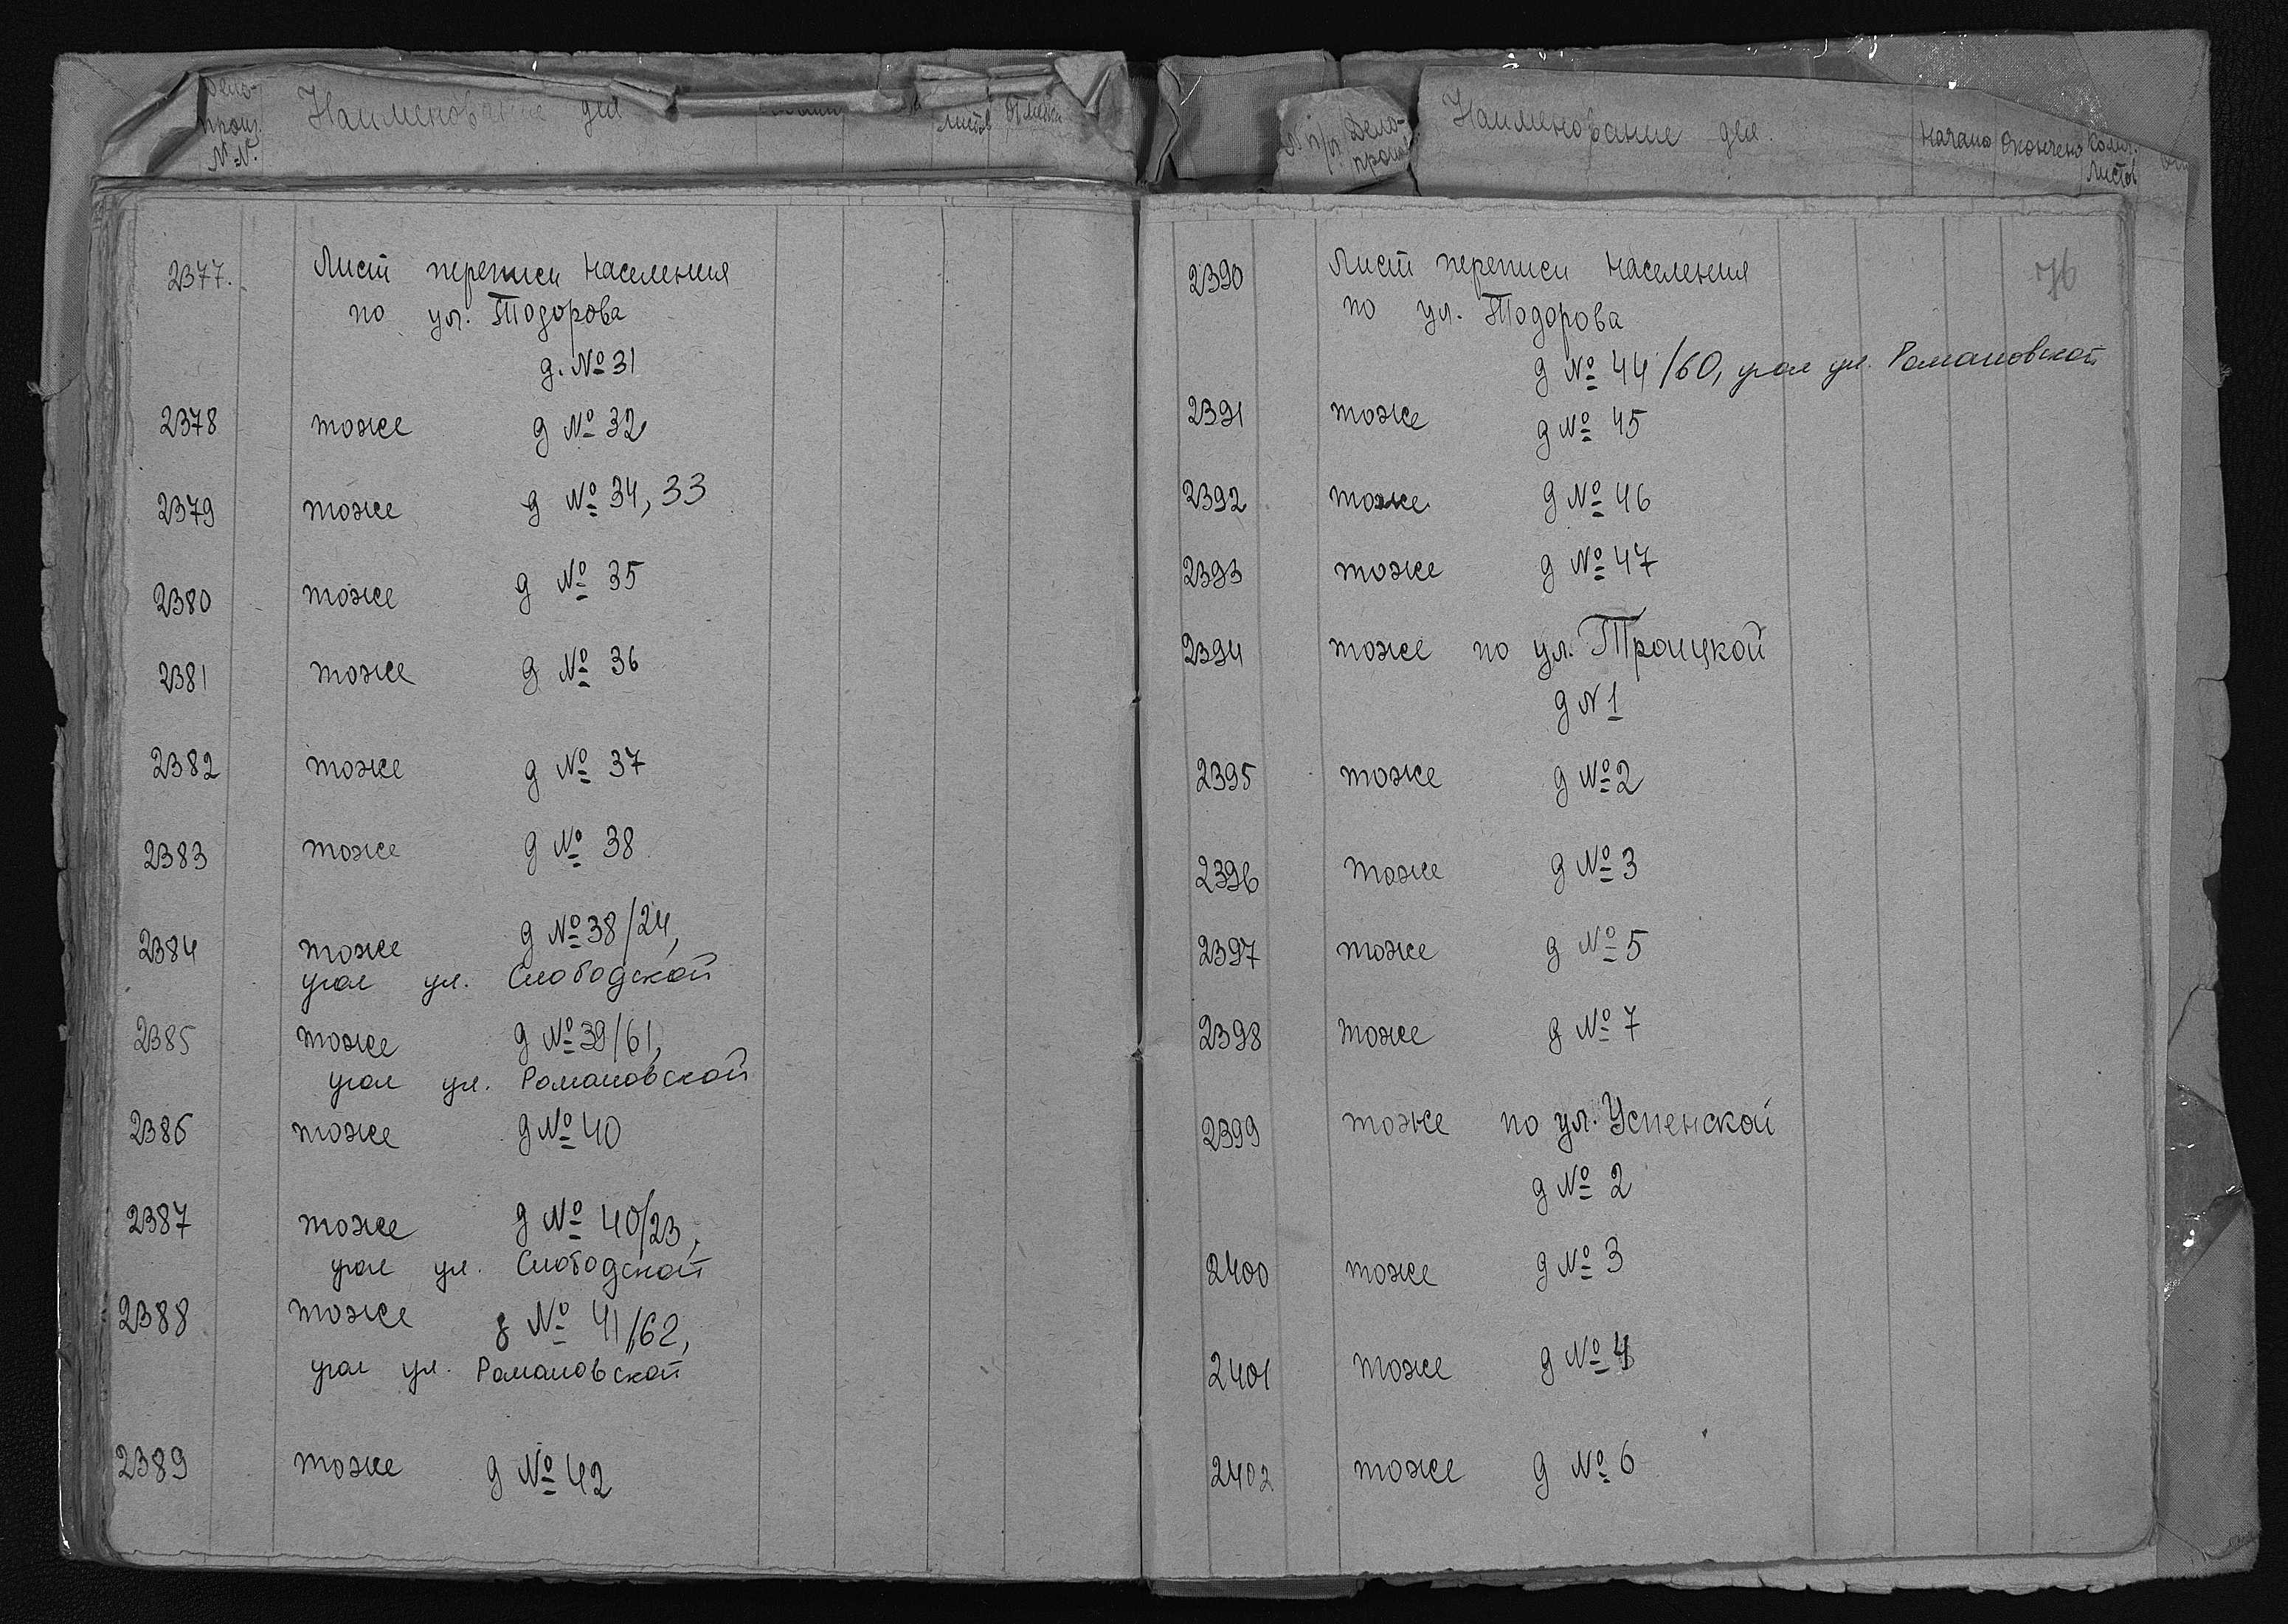 Дело-
произ.
N-N.
Наименование дел
листов
Отметка
2377. Лист переписи населения
по ул. Тодорова
д. № 31
2378 тоже д № 32
2379 тоже д № 34, 33
2380 тоже д № 35
2381 тоже д № 36
2382 тоже д № 37
2383 тоже д № 38
2384 тоже д № 38/24,
угол ул. Слободской
2385 тоже д № 39/61,
угол ул. Романовской
2386 тоже д № 40
2387 тоже д № 40/23,
угол ул. Слободской
2388 тоже д № 41/62,
угол ул. Романовской
2389 тоже д № 42
N п/п
Дело-
произ
Наименование дел.
Начато
Окончено
Колич.
Листов
76
2390 Лист переписи населения
по ул. Тодорова
д № 44/60, угол ул. Романовской
2391 тоже д № 45
2392 тоже д № 46
2393 тоже д № 47
2394 тоже по ул. Троицкой
д N 1
2395 тоже д № 2
2396 тоже д № 3
2397 тоже д № 5
2398 тоже д № 7
2399 тоже по ул. Успенской
д № 2
2400 тоже д № 3
2401 тоже д № 4
2402 тоже д № 6